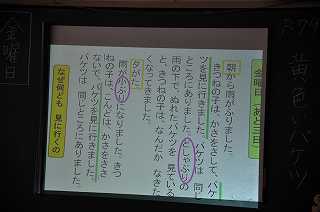 黄色いバケツ
金曜日
金曜日 あと三日
朝から雨がふりました。
きつねの子は、かさをさして、バケ
ツを見に行きました。バケツは 同じ
ところにありました。どしゃぶりの
雨の下で、ぬれたバケツを 見ている
と、きつねの子は、なんだか なきた
くなってきました。
夕がた、
雨が小ぶりになりました。きつ
ねの子は、こんどは かさをささ
ないで、バケツを見に行きました。
バケツは 同じところにありました。
なぜ何ども 見に行くの